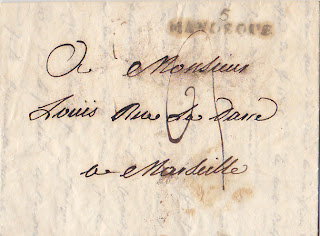 5
MANOSQUE
A Monsieur
Louis Rue La Darse
a Marseille